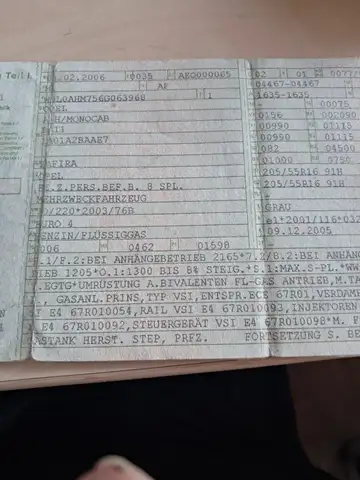 Teil I
.02.2006 0035 AEO000065 02 01 0077
AF 04467-04467
W0L0AHM756G063968 1 1635-1635
OPEL - 00075
A-H/MONOCAB 0156 002090
00990 01115
A01A2BAAE7 00990 01115
082 04500
ZAFIRA 01000 0750
OPEL 205/55R16 91H
FZ.Z.PERS.BEF.B. 8 SPL. 205/55R16 91H
MEHRZWECKFAHRZEUG
70/220*2003/76B GRAU
EURO 4 e1*2001/116*032
BENZIN/FLÜSSIGGAS 09.12.2005
006 0462 01598 -
.1/F.2:BEI ANHÄNGEBETRIEB 2165*7.2/8.2:BEI ANHÄNG
DIEB 1205*O.1:1300 BIS 8% STEIG.*S.1:MAX.S-PL.*WW
.EGTG*UMRÜSTUNG A.BIVALENTEN FL-GAS ANTRIEB,M.TA
., GASANL.PRINS,TYP VSI,ENTSPR.ECE 67R01,VERDAMF
T E4 67R010054,RAIL VSI E4 67R010093,INJEKTOREN
E4 67R010092,STEUERGERÄT VSI E4 67R010098*M. F
ASTANK HERST. STEP, PRFZ. FORTSETZUNG S. BE